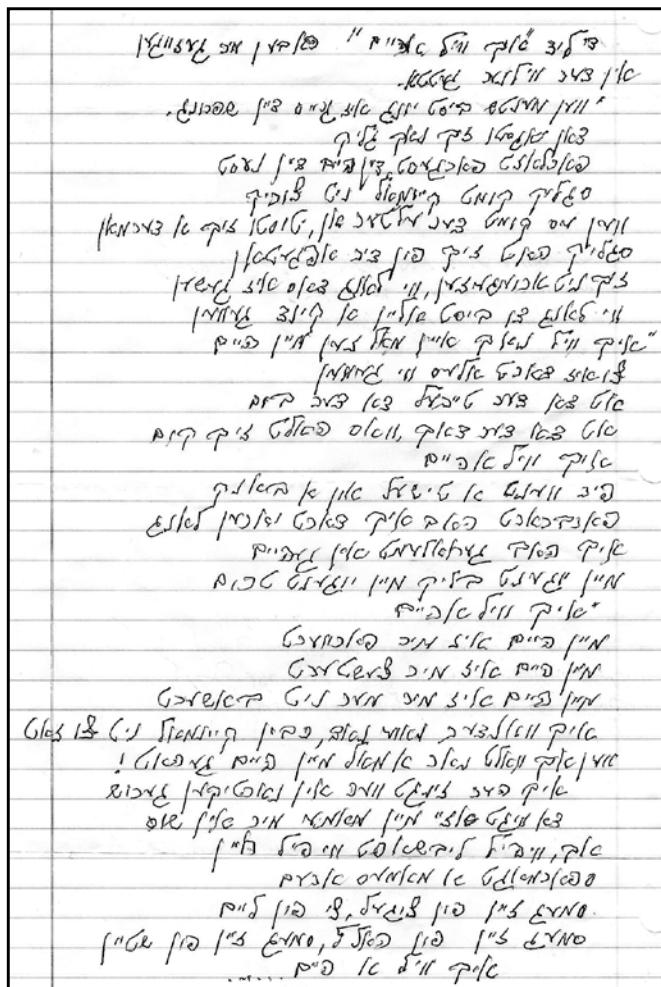 די ליד "איך וויל אהיים" האבן מיר געזונגען
אין דער ווילנער געטא.
"ווען מענטש ביסט יונג איז גרייס דיין שפרונג.
דאן יאגסטו זיך נאך גליק
פארלאזט פארגעסט דיין היים דיין נעסט
סגליק קומט קיינמאל ניט צוריק
ווען עס קומט דער עלטער אן, טוסטו זיך א דערמאן
סגליק האט זיך פון דיר אפגעטאן
זיך ניט ארומגעזען, ווי לאנג דאס איז געשען
ווי לאנג דו ביסט אליין א קינד געווען
"איך וויל נאך איין מאל זען מיין היים
צו איז דארט אלעס ווי געווען
אט דאן דער טייכל דאן דער בוים
אט דאן דער דאך, וואס האלט זיך קוים
איך וויל אהיים
פיר ווענט א טישעל און א באנק
פארבראכט האב איך דארט יארען לאנג
איך האב געחלומט אין געהיים
מיין יוגענט גליק מיין יוגענט טרוים
"איך וויל אהיים
מיין היים איז מיר פארווערט
מיין היים איז מיר צעשטערט
מיין היים איז מיר מער ניט באשערט
איך וואלדער נאך, כבין קיינמאל ניט צו זאט
ווען איך וואלט נאר אמאל מיין היים געהאט!
איך הער זינגט ווער אין נאכטיקען גערויש
דא וויגט אזוי מיין מאמע מיר אין שויס
אך, וויפיל ליבשאפט ווי פיל חיין
ספארמאגט א מאמעס ארעם
סמעג זיין פון ציגעל, צי פון ליים
סמעג זיין פון האלץ, סמעג זיין פון שטיין
איך וויל א היים......